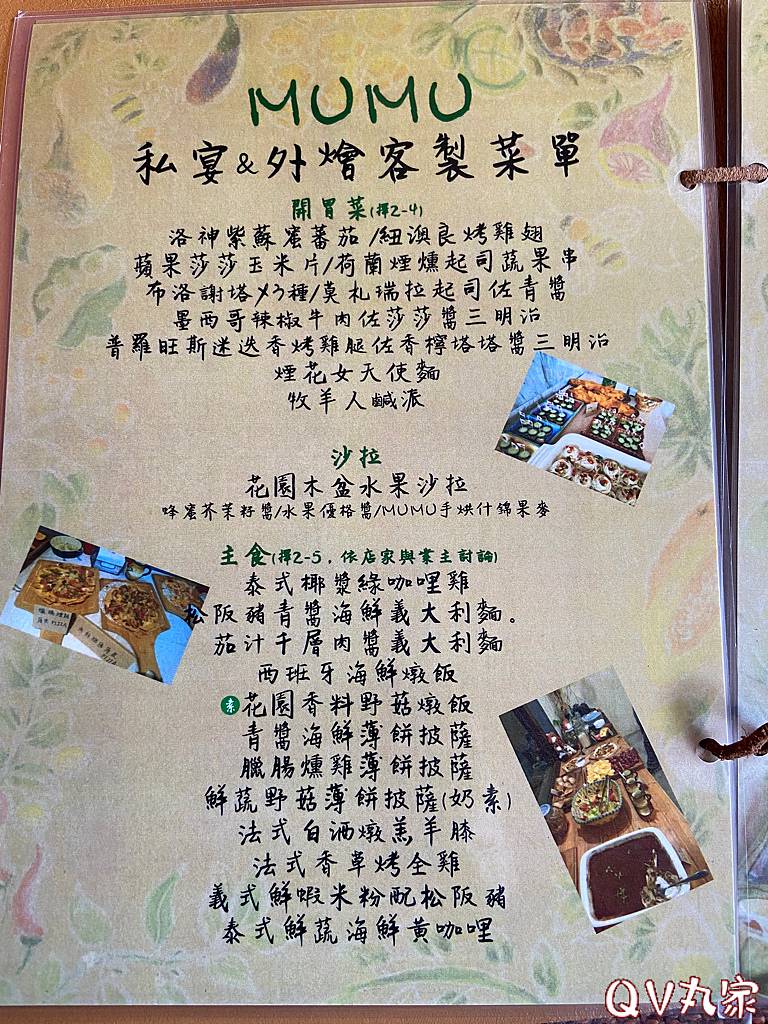 MUMU
私宴&外燴客製菜單
開冒菜(擇2-4)
洛神紫蘇蜜蕃茄/紐澳良烤雞翅
蘋果莎莎玉米片/荷蘭煙燻起司蔬果串
布洛謝塔×3種/莫札瑞拉起司佐青醬
墨西哥辣椒牛肉佐莎莎醬三明治
普羅旺斯迷迭香烤雞腿佐香檸塔塔醬三明治
煙花女天使麵
牧羊人鹹派
沙拉
花園木盆水果沙拉
蜂蜜芥茉籽醬/水果優格醬/MUMU手烘什錦果麥
主食(擇2-5，依店家與業主討論)
泰式椰漿綠咖哩雞
松阪豬青醬海鮮義大利麵。
茄汁千層肉醬義大利麵
西班牙海鮮燉飯
素 花園香料野菇燉飯
青醬海鮮薄餅披薩
臘腸燻雞薄餅披薩
鮮蔬野菇薄餅披薩(奶素)
法式白酒燉羔羊膝
法式香草烤全雞
義式鮮蝦米粉配松阪豬
泰式鮮蔬海鮮黃咖哩
QV丸家